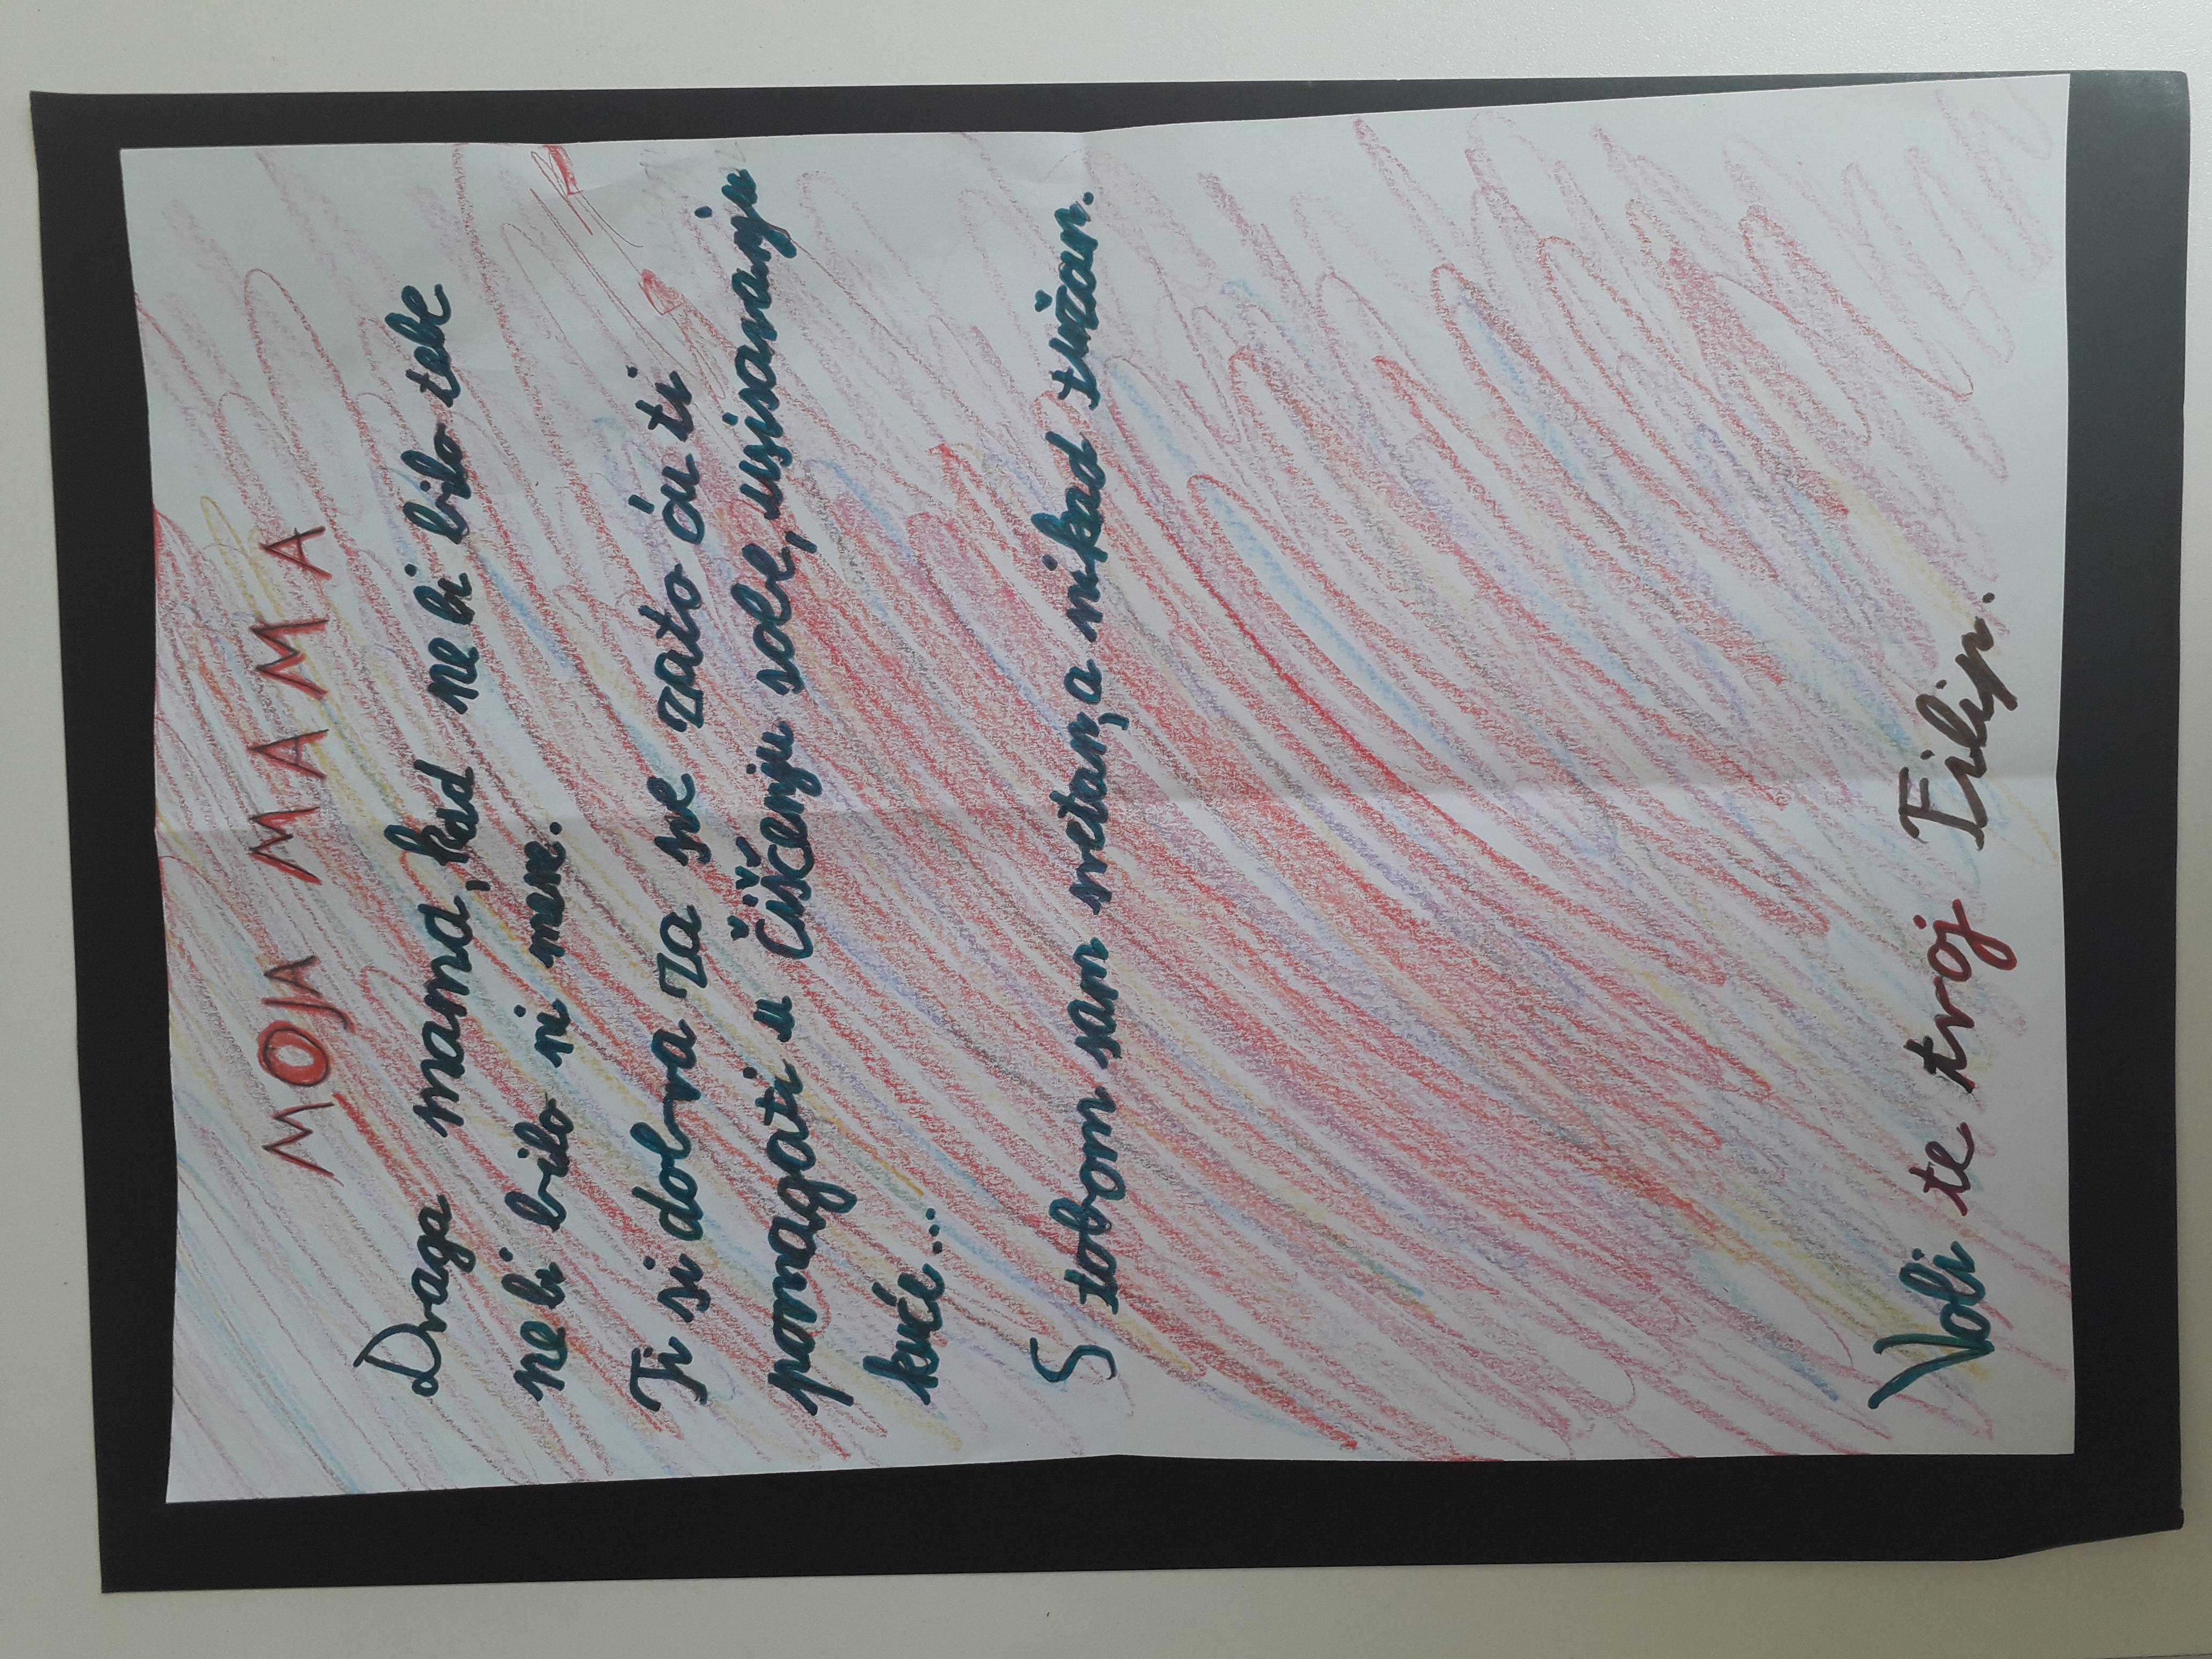 MOJA MAMA
Draga mama, kad ne bi bilo tebe
ne bi bilo ni mene.
Ti si dobra za sve zato ću ti
pomagati u čišćenju sobe, usisavanju
kuće...
S tobom sam sretan, a nikad tužan.
Voli te tvoj Filip.